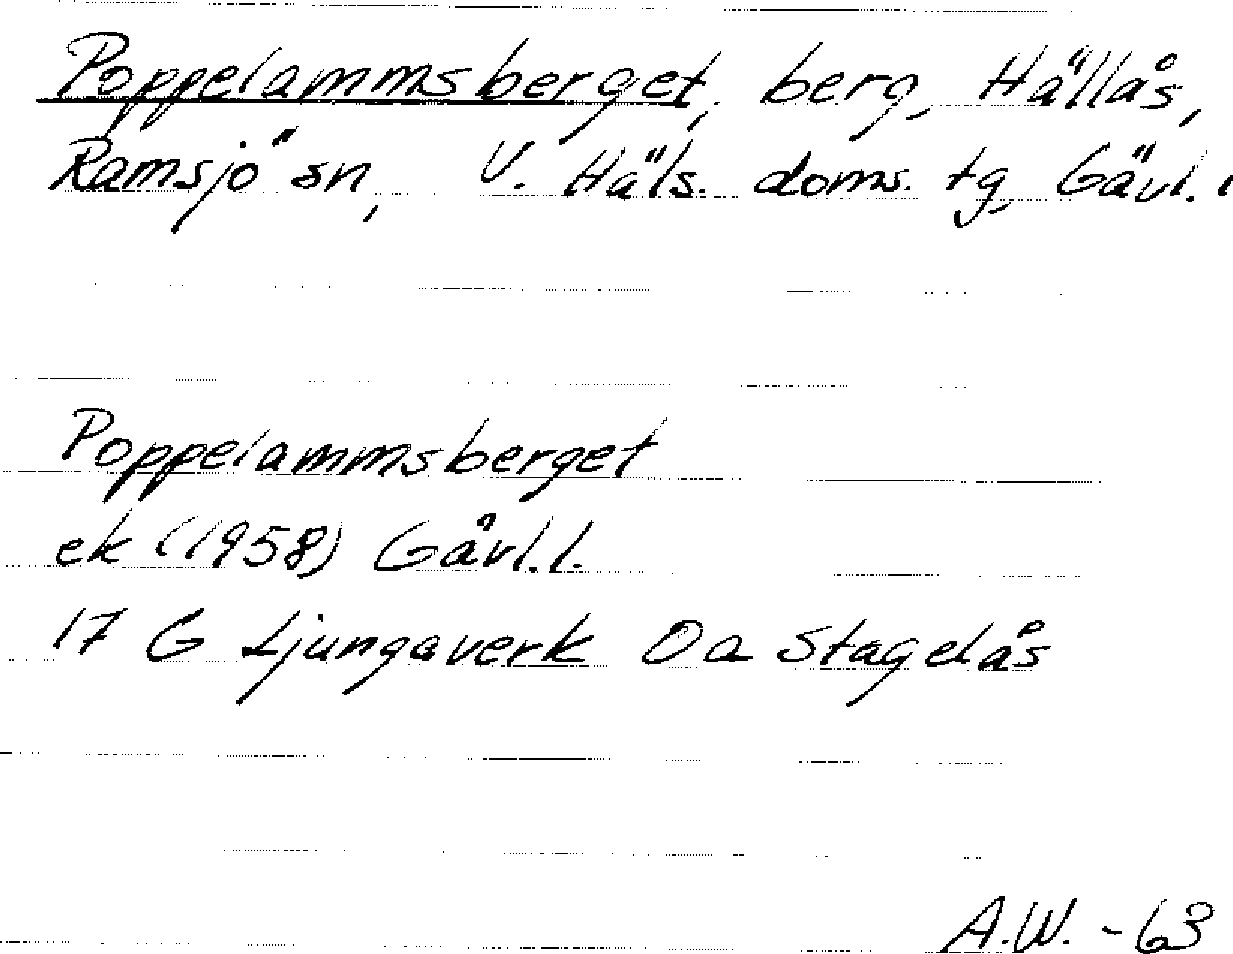 Poppelammsberget, berg, Hällås,
Ramsjö sn, V. Häls. doms. tg, Gävl. l
Poppelammsberget
ek (1958) Gävl. l.
17 G Ljungaverk Oa Stagelås
A.W. -63